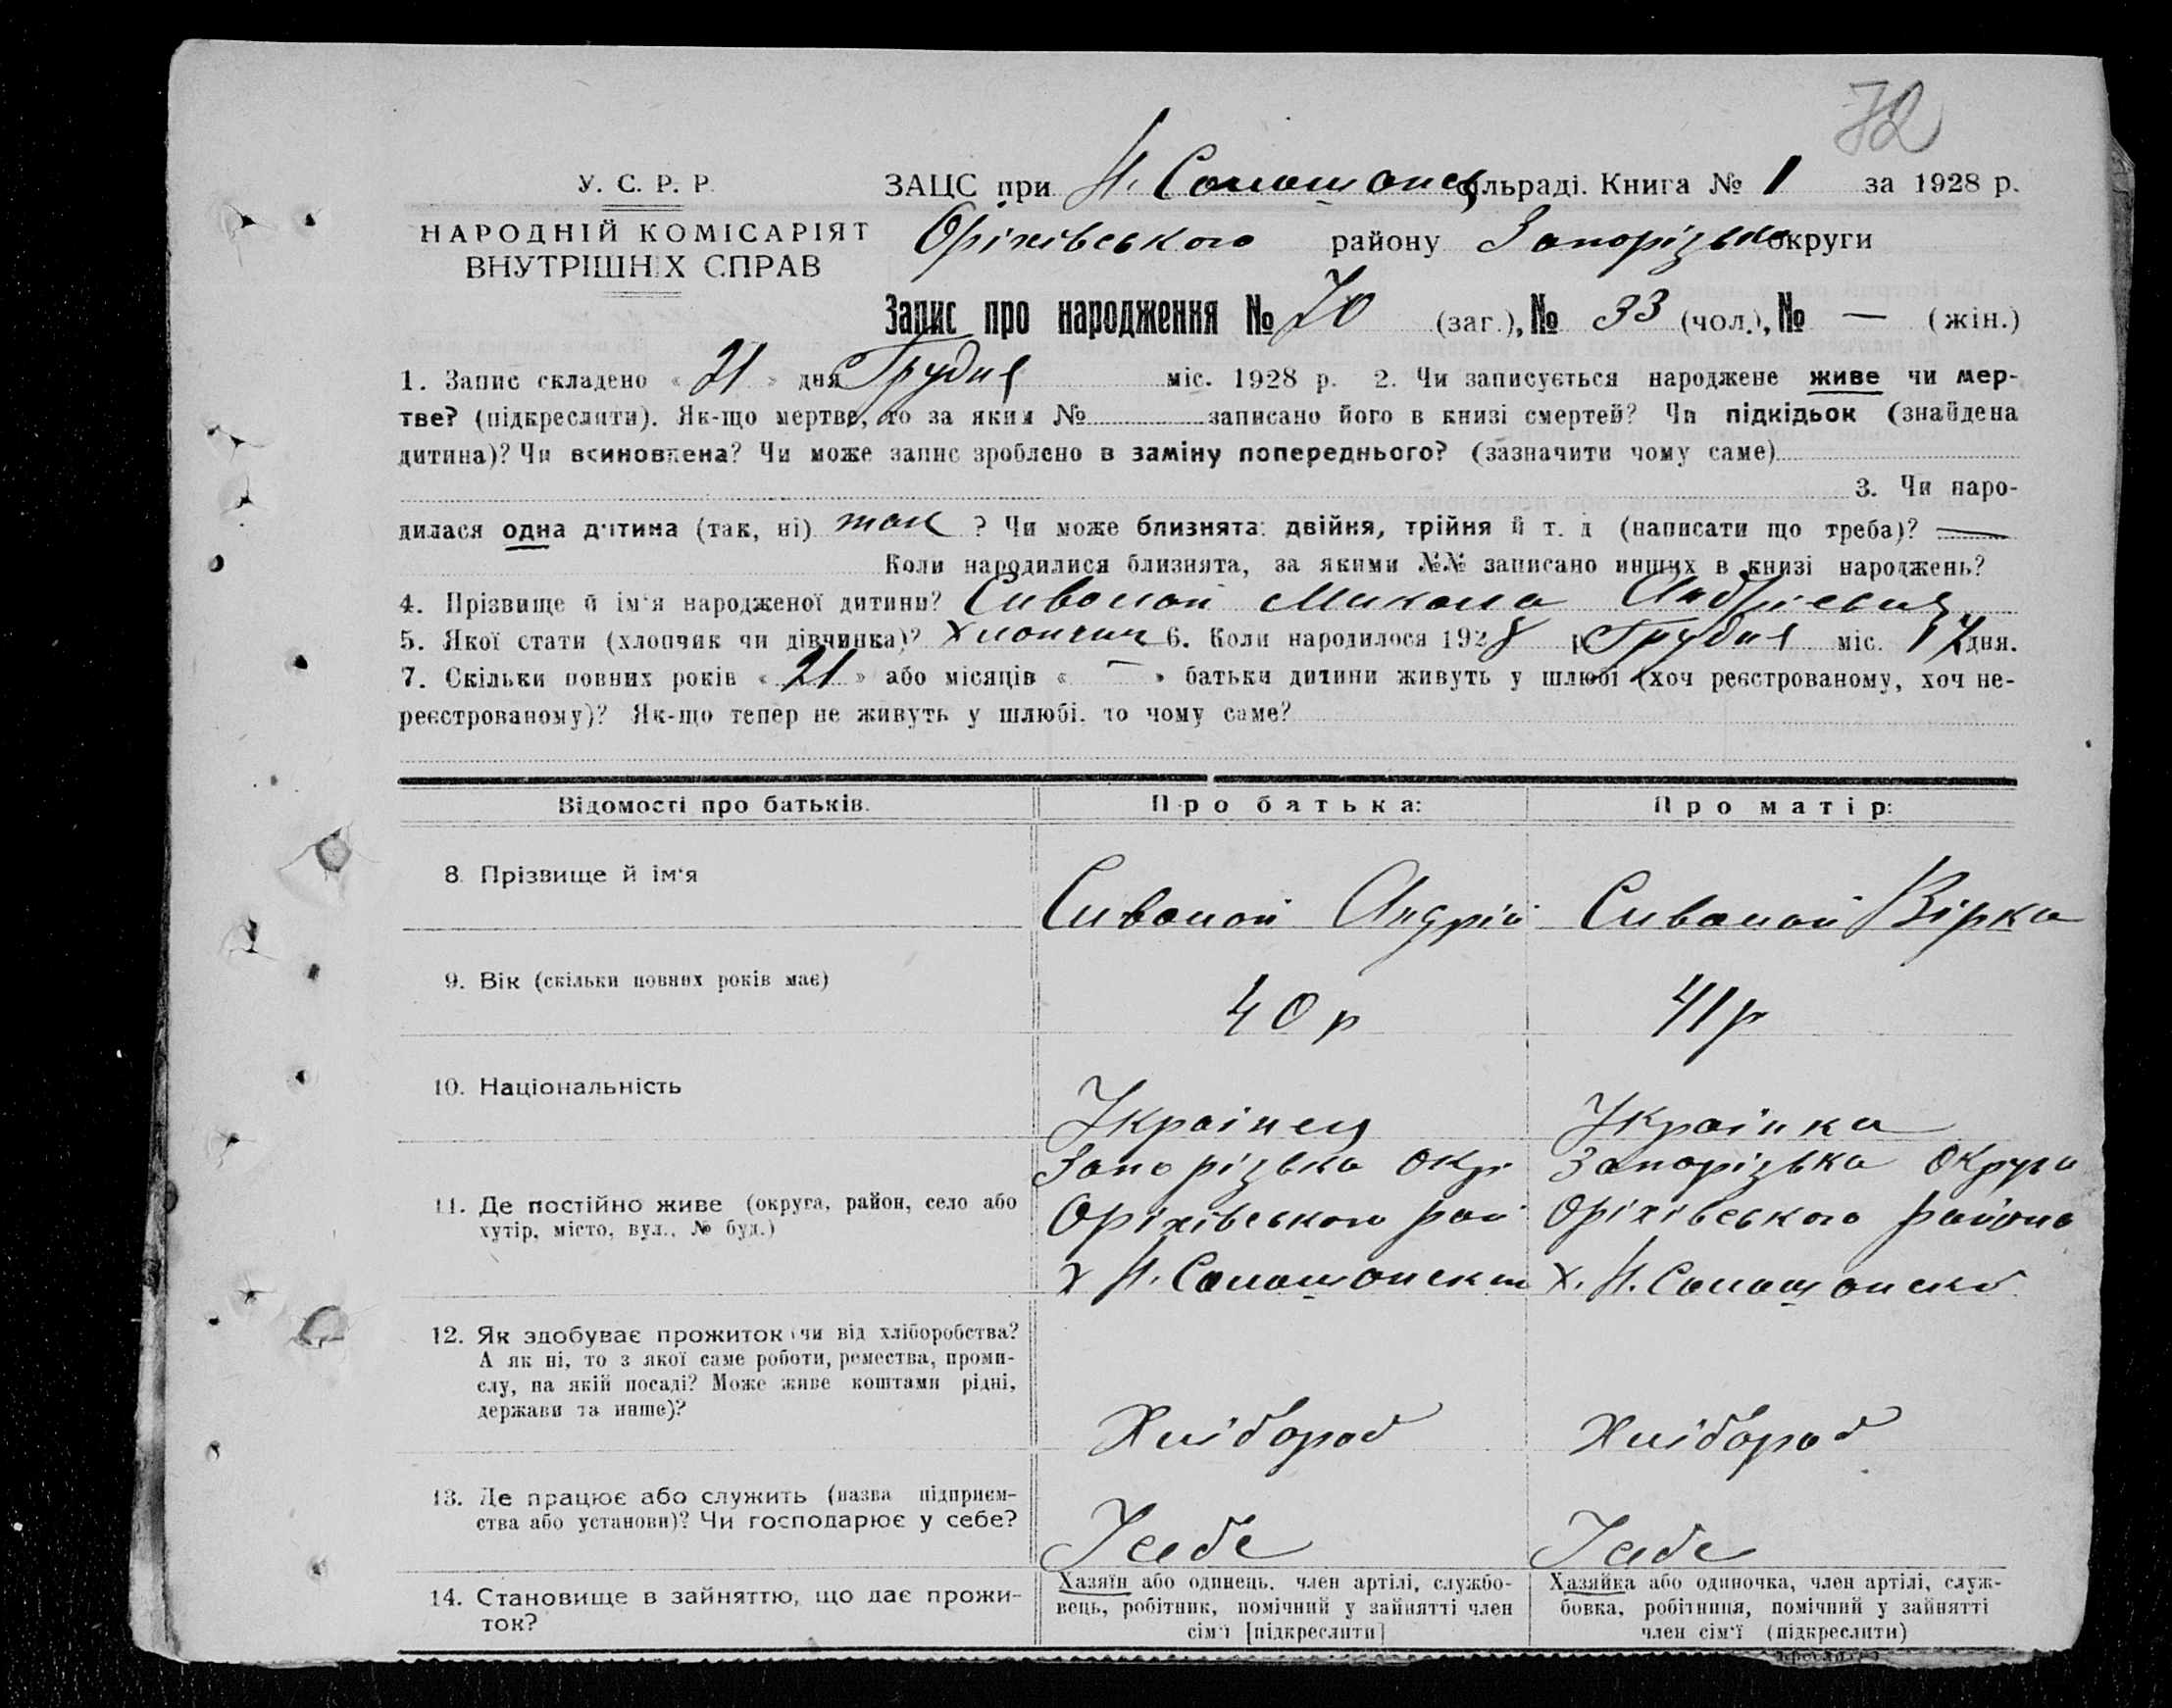 72
У. С. Р. Р.
НАРОДНІЙ КОМІСАРІЯТ
ВНУТРІШНІХ СПРАВ
ЗАЦС при Н. Солошанс сільраді. Книга № 1 за 1928 р.
Оріхівського району Запорізька округи
Запис про народження № 70 (заг.), № 33 (чол.), № — (жін.)
1. Запис складено « 21 » дня Грудня міс. 1928 р. 2. Чи записується народжене живе чи мер-
тве? (підкреслити). Як-що мертве, то за яким № записано його в книзі смертей? Чи підкідьок (знайдена
дитина)? Чи всиновлена? Чи може запис зроблено в заміну попереднього? (зазначити чому саме)
3. Чи наро-
дилася одна дитина (так, ні) так ? Чи може близнята: двійня, трійня й т. д (написати що треба)? —
Коли народилися близнята, за якими №№ записано инших в книзі народжень?
4. Прізвище й ім'я народженої дитини? Сиволой Микола Андрієвич
5. Якої стати (хлопчик чи дівчинка)? Хлопчик 6. Коли народилося 1928 р Грудня міс. 17 дня.
7. Скільки повних років « 21 » або місяців « — » батьки дитини живуть у шлюбі (хоч реєстрованому, хоч не-
реєстрованому)? Як-що тепер не живуть у шлюбі. то чому саме?
Відомості про батьків. Про батька: Про матір:
8. Прізвище й ім'я Сиволой Андрій Сиволой Вірка
9. Вік (скільки повних років має) 40 р 41 р
10. Національність Українец Українка
11. Де постійно живе (округа, район, село або
хутір, місто, вул., № буд.)
Запорізька окр Запорізька округа
Оріхівського рай Оріхівського района
х Н. х. Н.
12. Як здобуває прожиток (чи від хліборобства?
А як ні, то з якої саме роботи, ремества, проми-
слу, на якій посаді? Може живе коштами рідні,
держави та инше)?
Хлібороб Хлібороб
13. Де працює або служить (назва підприєм-
ства або установи)? Чи господарює у себе?
У себе У себе
14. Становище в зайняттю, що дає прожи-
ток?
Хазяїн або одинець, член артілі, службо-
вець, робітник, помічний у зайнятті член
сім'ї [підкреслити]
Хазяйка або одиночка, член артілі, служ-
бовка, робітниця, помічний у зайнятті
член сім'ї (підкреслити)